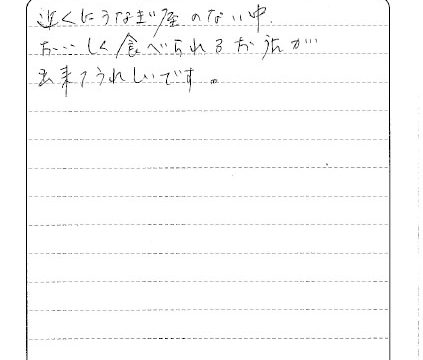 近くにうなぎ屋のない中、
おいしく食べられるおうちが
出来てうれしいです。